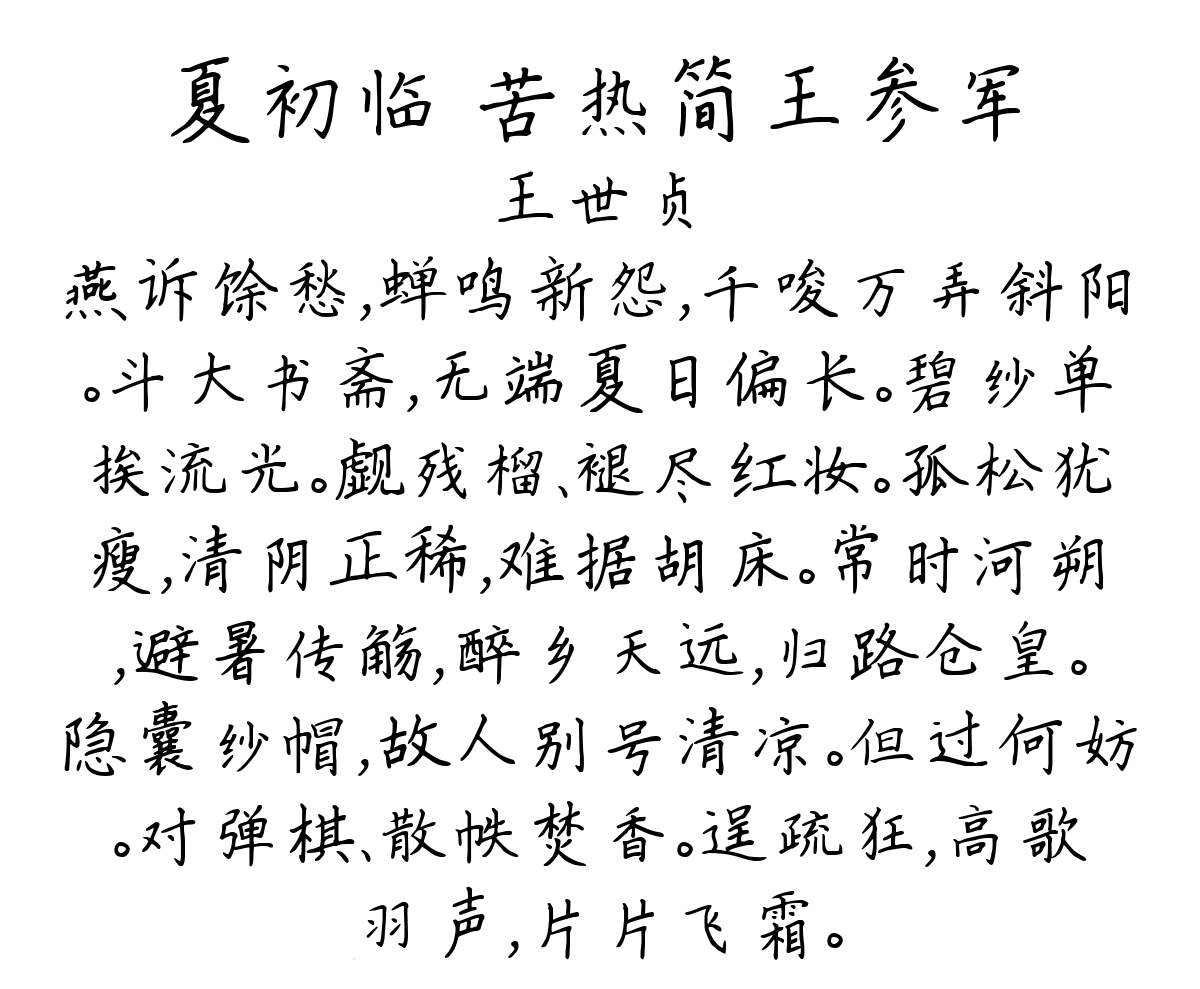 夏初临 苦热简王参军
王世贞
燕诉馀愁,蝉鸣新怨,千唆万弄斜阳
。斗大书斋,无端夏日偏长。碧纱单
挨流光。觑残榴、褪尽红妆。孤松犹
瘦,清阴正稀,难据胡床。常时河朔
,避暑传觞,醉乡天远,归路仓皇。
隐囊纱帽,故人别号清凉。但过何妨
。对弹棋、散帙焚香。逞疏狂,高歌
羽声,片片飞霜。